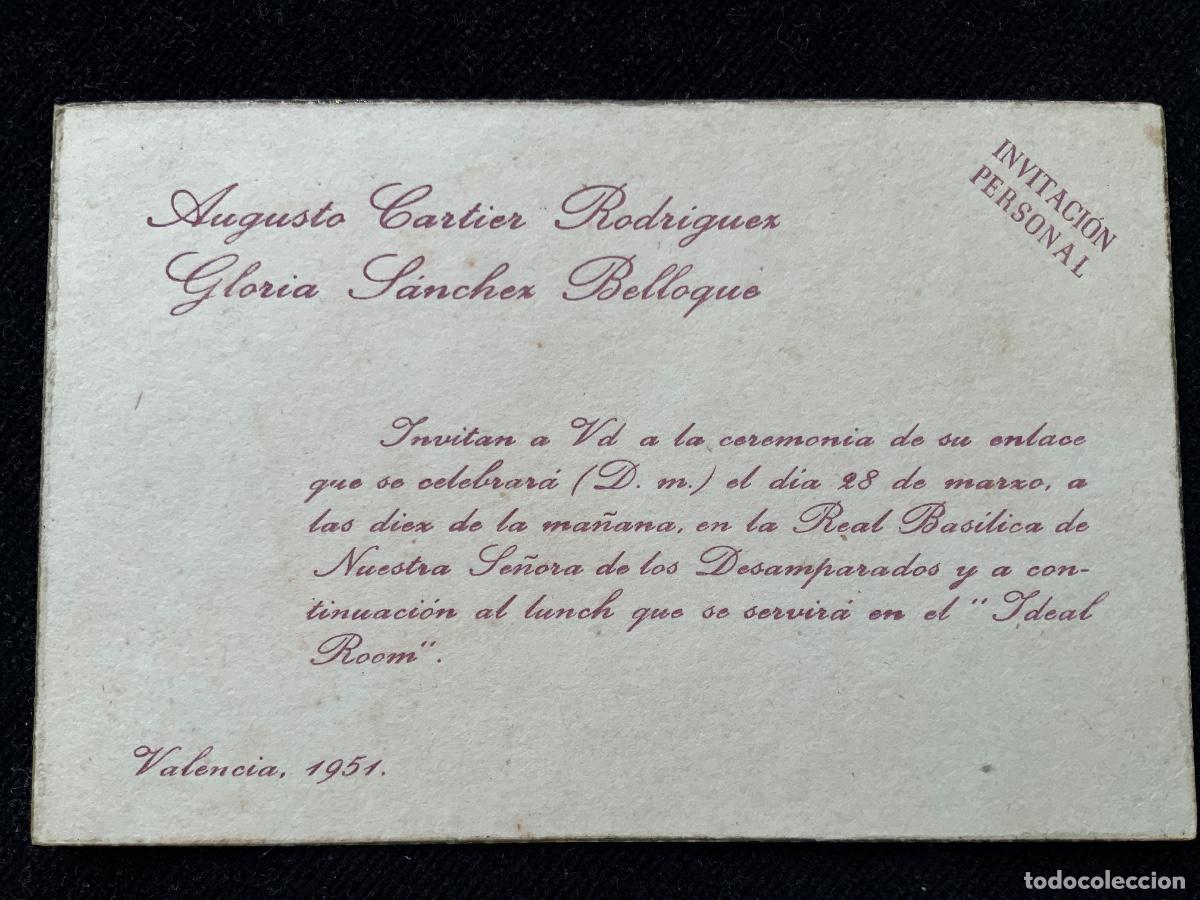 INVITACIÓN
PERSONAL
Augusto Cartier Rodriguez
Gloria Sánchez Belloque
Invitan a Vd a la ceremonia de su enlace
que se celebrará (D. m.) el día 28 de marzo, a
las diez de la mañana, en la Real Basílica de
Nuestra Señora de los Desamparados y a con-
tinuación al lunch que se servirá en el "Ideal
Room".
Valencia, 1951.
todocoleccion